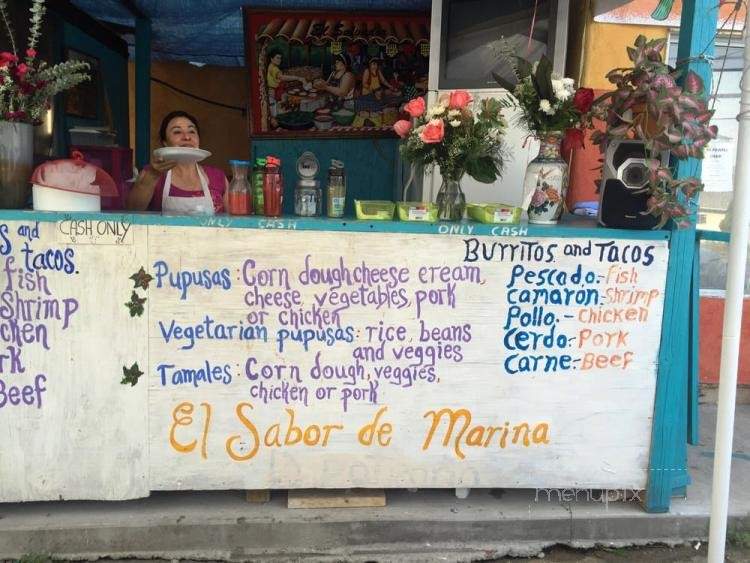 CASH ONLY
ONLY CASH
ONLY CASH
s and
tacos.
fish
Shrimp
cken
rk
Beef
Pupusas: Corn dough cheese cream,
cheese, vegetables, pork
or chicken
Vegetarian pupusas: rice, beans
and veggies
Tamales: Corn dough, veggies,
chicken or pork
El Sabor de Marina
BURRITOS and TACOS
Pescado.-Fish
Camaron-Shrimp
Pollo.-Chicken
Cerdo.-Pork
Carne.-Beef
menupix